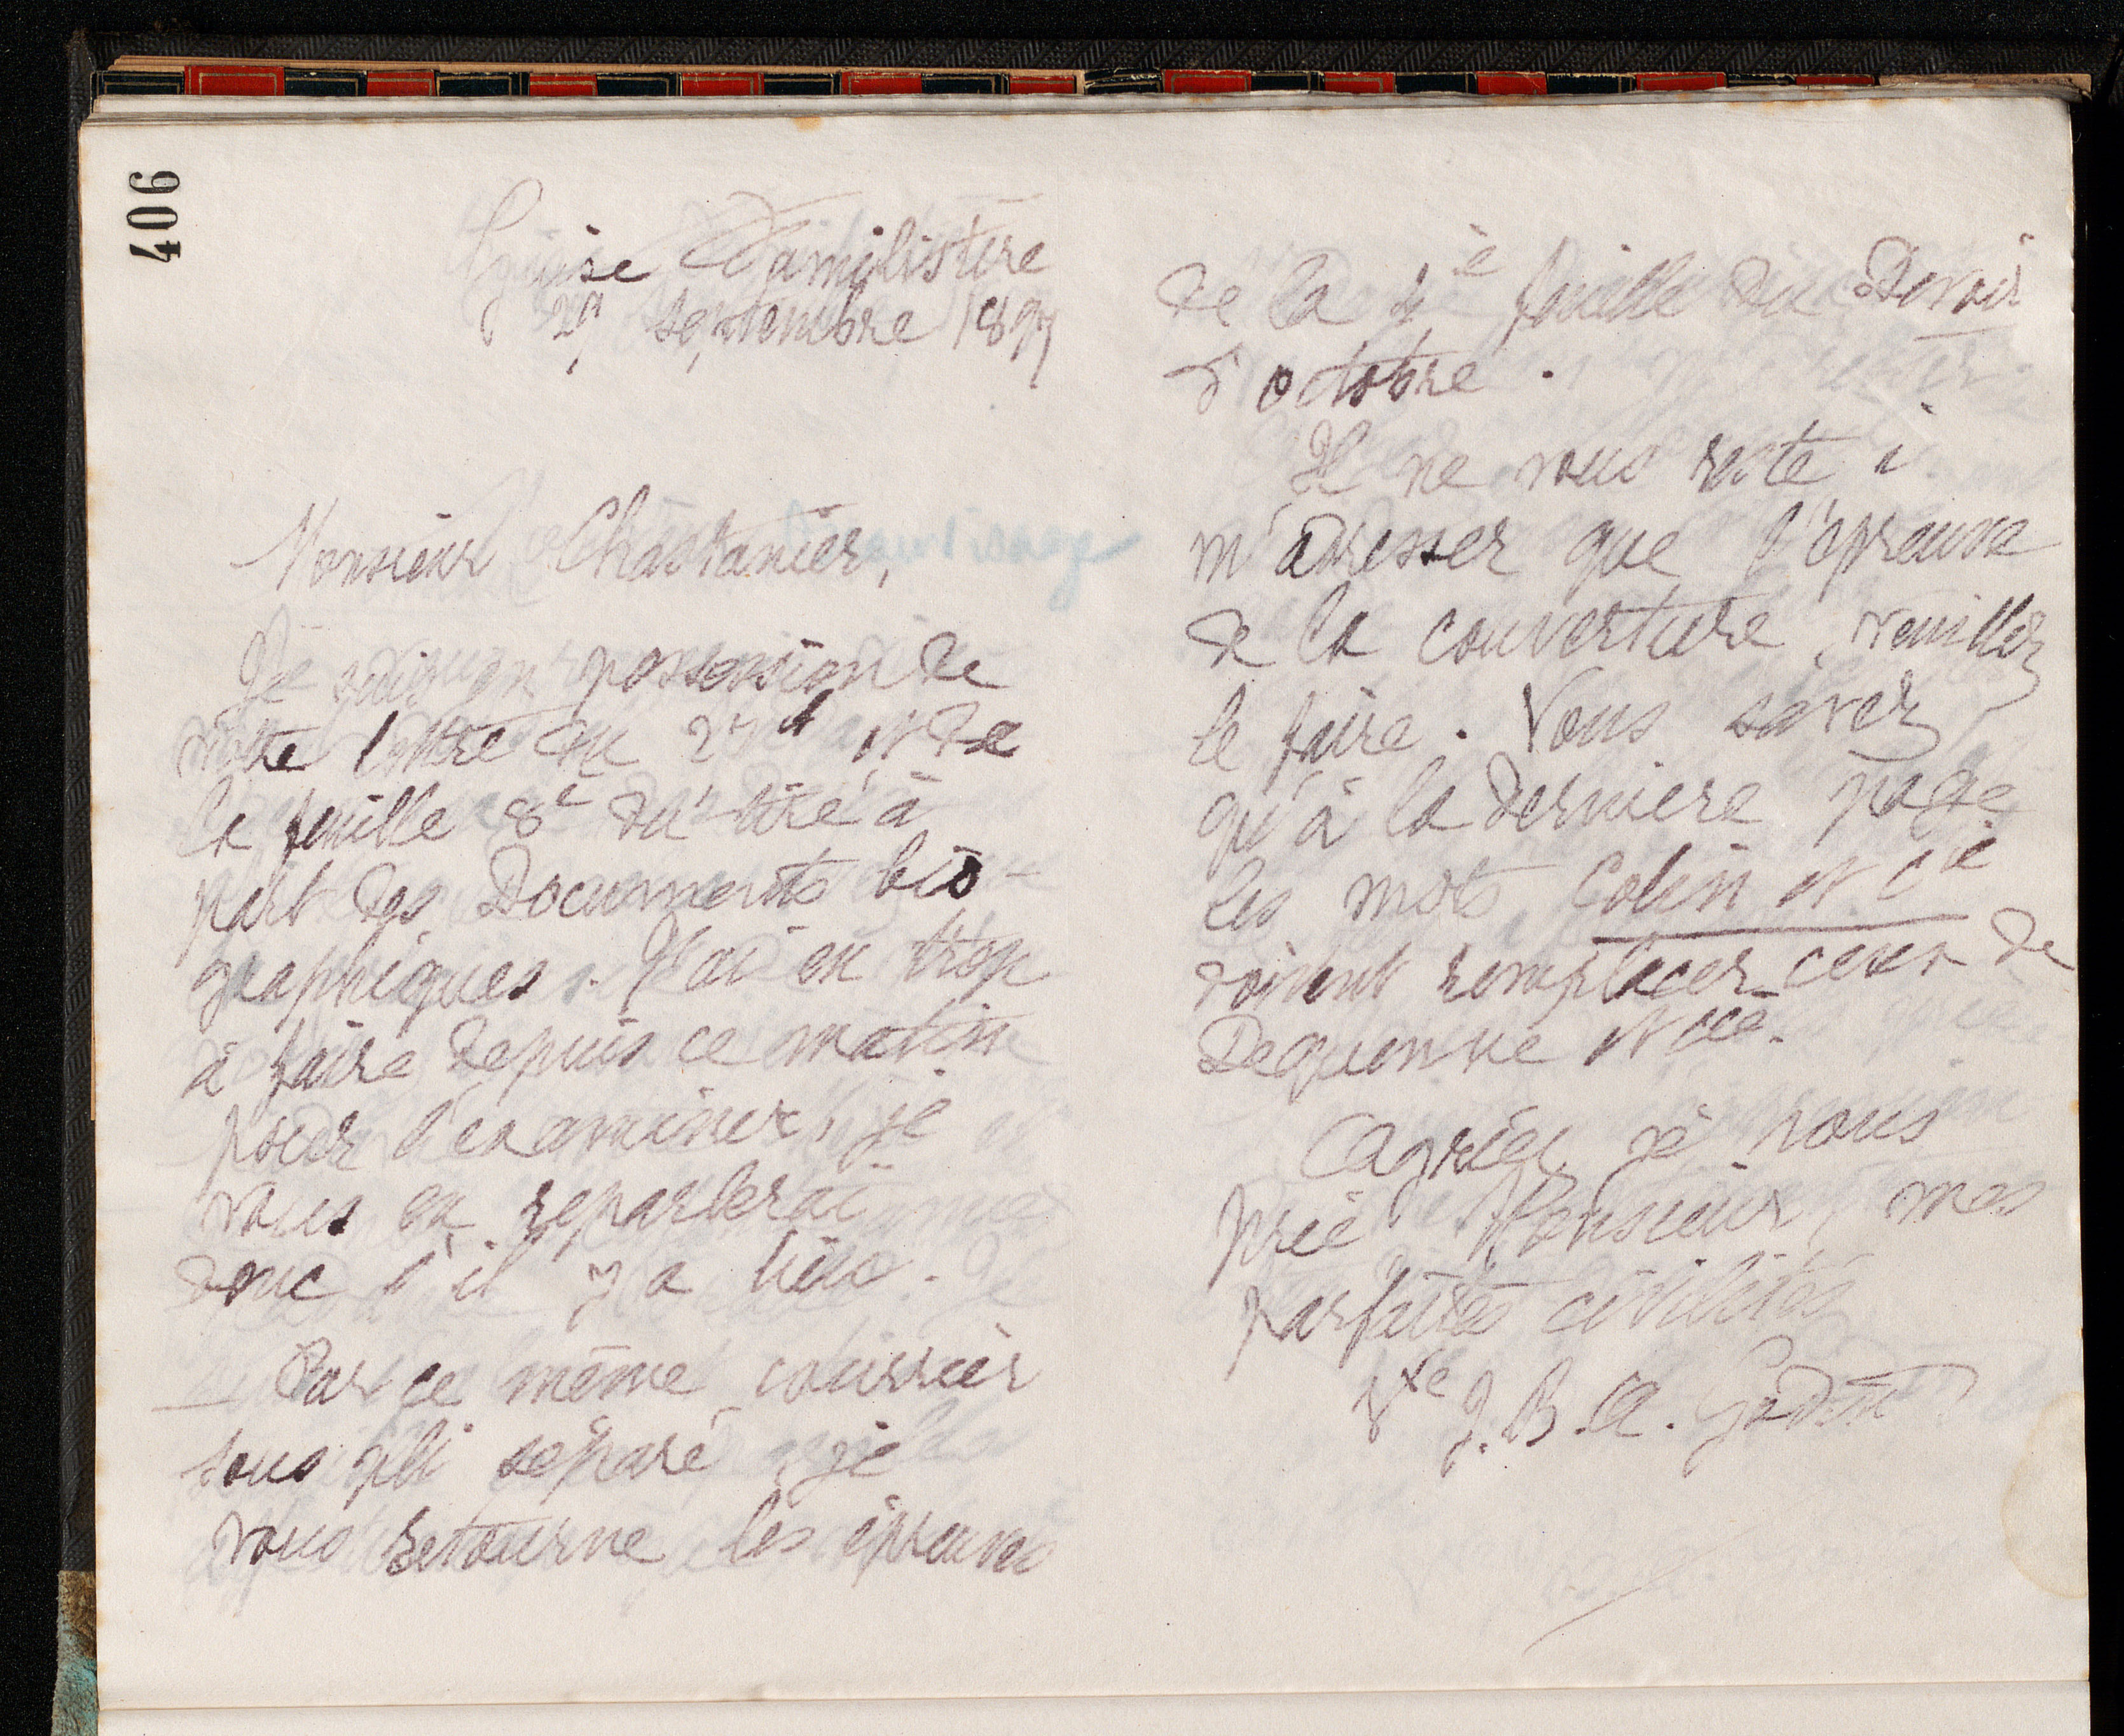 406
Guise Familistère
29 septembre 1897
Monsieur Chastanier,
Je suis en possession de
votre lettre du 27 et de
la feuille 8e du tiré à
part des Documents bio-
graphiques. J'ai eu trop
à faire depuis ce matin
pour l'examiner, je
vous en reparlerai
donc s'il y a lieu.
Par ce même courrier
sous pli séparé je
vous retourne les épreuves
de la 4e feuille du Devoir
d'octobre.
Il ne vous reste à
m'adresser que l'épreuve
de la couverture, veuillez
le faire. Vous savez
qu'à la dernière page
les mots Colin et Cie
doivent remplacer ceux de
Dequenne et Cie.
Agréez, je vous
prie Monsieur, mes
parfaites civilités
Vve J. B. A. Godin